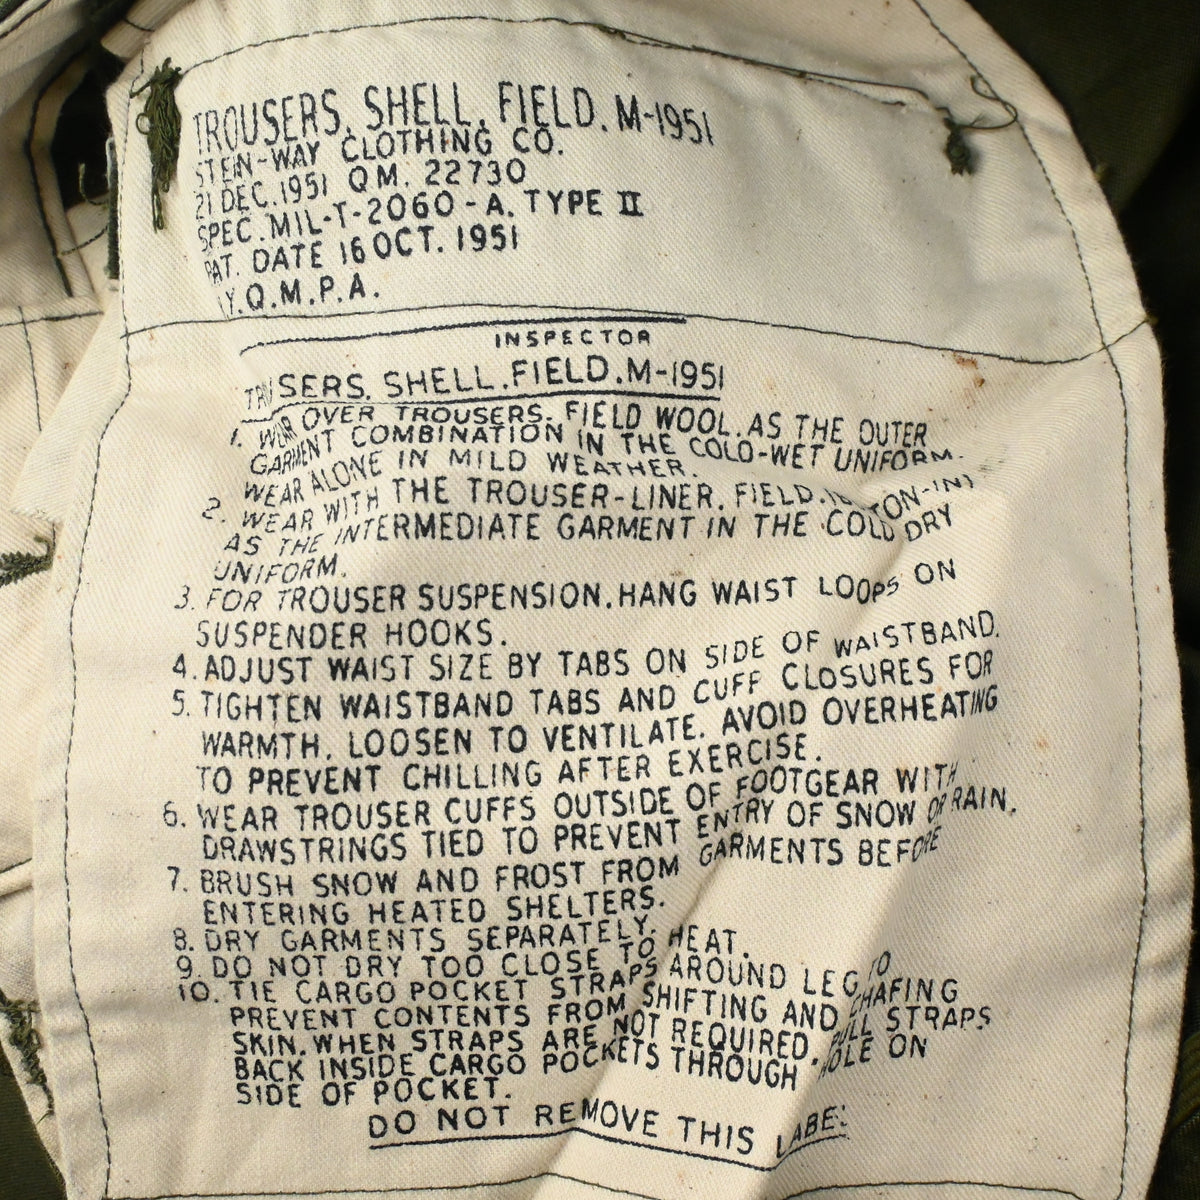 TROUSERS, SHELL, FIELD, M-1951
STEIN-WAY CLOTHING CO.
21 DEC. 1951 QM. 22730
SPEC. MIL-T-2060-A. TYPE II
PAT. DATE 16 OCT. 1951
Y.Q.M.P.A.
INSPECTOR
TROUSERS, SHELL, FIELD, M-1951
1. WEAR OVER TROUSERS, FIELD WOOL, AS THE OUTER
GARMENT COMBINATION IN THE COLD-WET UNIFORM.
WEAR ALONE IN MILD WEATHER.
2. WEAR WITH THE TROUSER-LINER, FIELD,
AS THE INTERMEDIATE GARMENT IN THE COLD DRY
UNIFORM.
3. FOR TROUSER SUSPENSION, HANG WAIST LOOPS ON
SUSPENDER HOOKS.
4. ADJUST WAIST SIZE BY TABS ON SIDE OF WAISTBAND.
5. TIGHTEN WAISTBAND TABS AND CUFF CLOSURES FOR
WARMTH. LOOSEN TO VENTILATE. AVOID OVERHEATING
TO PREVENT CHILLING AFTER EXERCISE.
6. WEAR TROUSER CUFFS OUTSIDE OF FOOTGEAR WITH
DRAWSTRINGS TIED TO PREVENT ENTRY OF SNOW OR RAIN.
7. BRUSH SNOW AND FROST FROM GARMENTS BEFORE
ENTERING HEATED SHELTERS.
8. DRY GARMENTS SEPARATELY.
9. DO NOT DRY TOO CLOSE TO HEAT.
10. TIE CARGO POCKET STRAPS AROUND LEG TO
PREVENT CONTENTS FROM SHIFTING AND CHAFING
SKIN. WHEN STRAPS ARE NOT REQUIRED, PULL STRAPS
BACK INSIDE CARGO POCKETS THROUGH HOLE ON
SIDE OF POCKET.
DO NOT REMOVE THIS LABEL